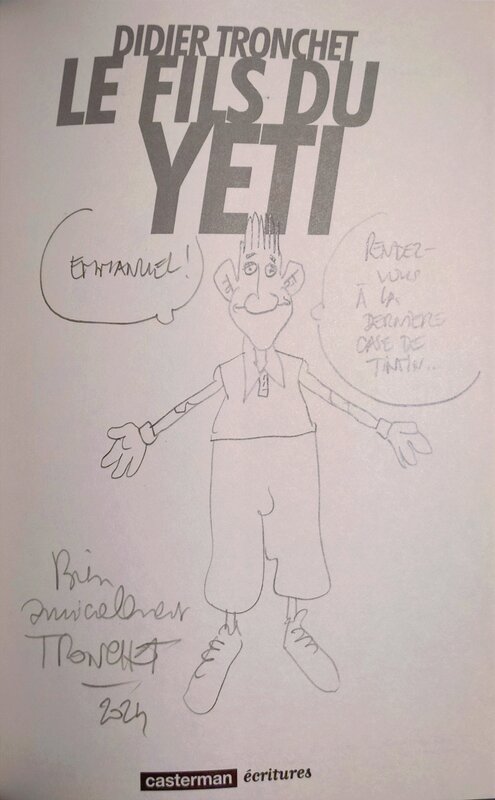 DIDIER TRONCHET
LE FILS DU
YÉTI
EMMANUEL!
RENDEZ-
VOUS
À LA
DERNIÈRE
CASE DE
TINTIN..
Bien
amicalement
TRONCHET
2024
casterman écritures